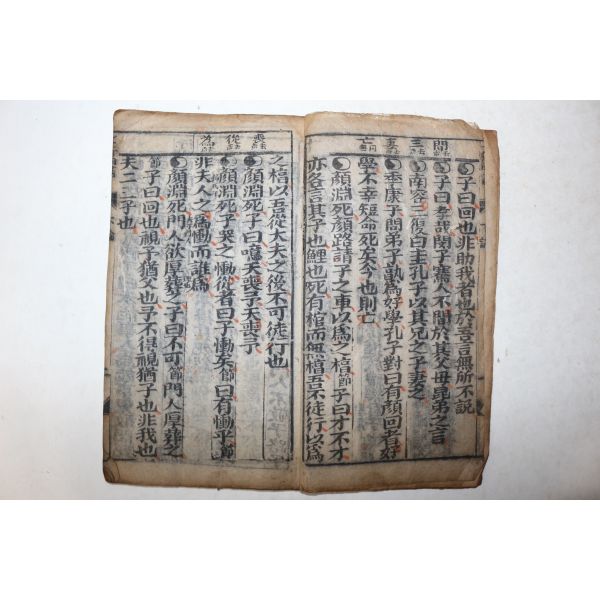 間 三 妻 亡
子曰回也非助我者也於吾言無所不說
子曰孝哉閔子騫人不間於其父母昆弟之言
南容三復白圭孔子以其兄之子妻之
季康子問弟子孰爲好學孔子對曰有顏回者好
學不幸短命死矣今也則亡
顏淵死顏路請子之車以爲之椁節子曰才不才
亦各言其子也鯉也死有棺而無椁吾不徒行以爲
喪 從 爲
之椁以吾從大夫之後不可徒行也
顏淵死子曰噫天喪予天喪予
顏淵死子哭之慟從者曰子慟矣節曰有慟乎節
非夫人之爲慟而誰爲
顏淵死門人欲厚葬之子曰不可節門人厚葬之
節子曰回也視予猶父也予不得視猶子也非我也
夫二三子也